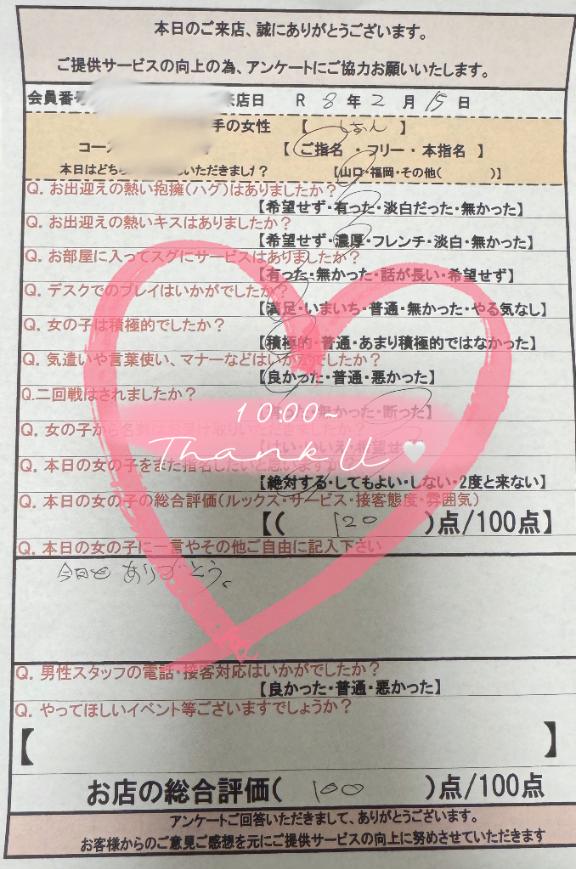 本日のご来店、誠にありがとうございます。
ご提供サービスの向上の為、アンケートにご協力お願いいたします。
会員番号 来店日 R 8 年 2 月 15 日
手の女性 【 しおん 】
コース 【 ご指名 ・ フリー ・ 本指名 】
本日はどちら いただきました? 【山口・福岡・その他( )】
Q. お出迎えの熱い抱擁(ハグ)はありましたか?
【希望せず・有った・淡白だった・無かった】
Q. お出迎えの熱いキスはありましたか?
【希望せず・濃厚・フレンチ・淡白・無かった】
Q. お部屋に入ってスグにサービスはありましたか?
【有った・無かった・話が長い・希望せず】
Q. デスクでのプレイはいかがでしたか?
【満足・いまいち・普通・無かった・やる気なし】
Q. 女の子は積極的でしたか?
【積極的・普通・あまり積極的ではなかった】
Q. 気遣いや言葉使い、マナーなどはいかがでしたか?
【良かった・普通・悪かった】
Q.二回戦はされましたか?
無かった・断った】
10:00~
Q. 女の子から名刺は
Thank U
Q. 本日の女の子をまた指名したいと思いますか
【絶対する・してもよい・しない・2度と来ない】
Q. 本日の女の子の総合評価(ルックス・サービス・接客態度・雰囲気)
【( 120 )点/100点】
Q. 本日の女の子に一言やその他ご自由に記入下さい
今日も ありがとう。
Q. 男性スタッフの電話・接客対応はいかがでしたか?
【良かった・普通・悪かった】
Q. やってほしいイベント等ございますでしょうか?
【 】
お店の総合評価( 100 )点/100点
アンケートご回答いただきまして、ありがとうございます。
お客様からのご意見ご感想を元にご提供サービスの向上に努めさせていただきます